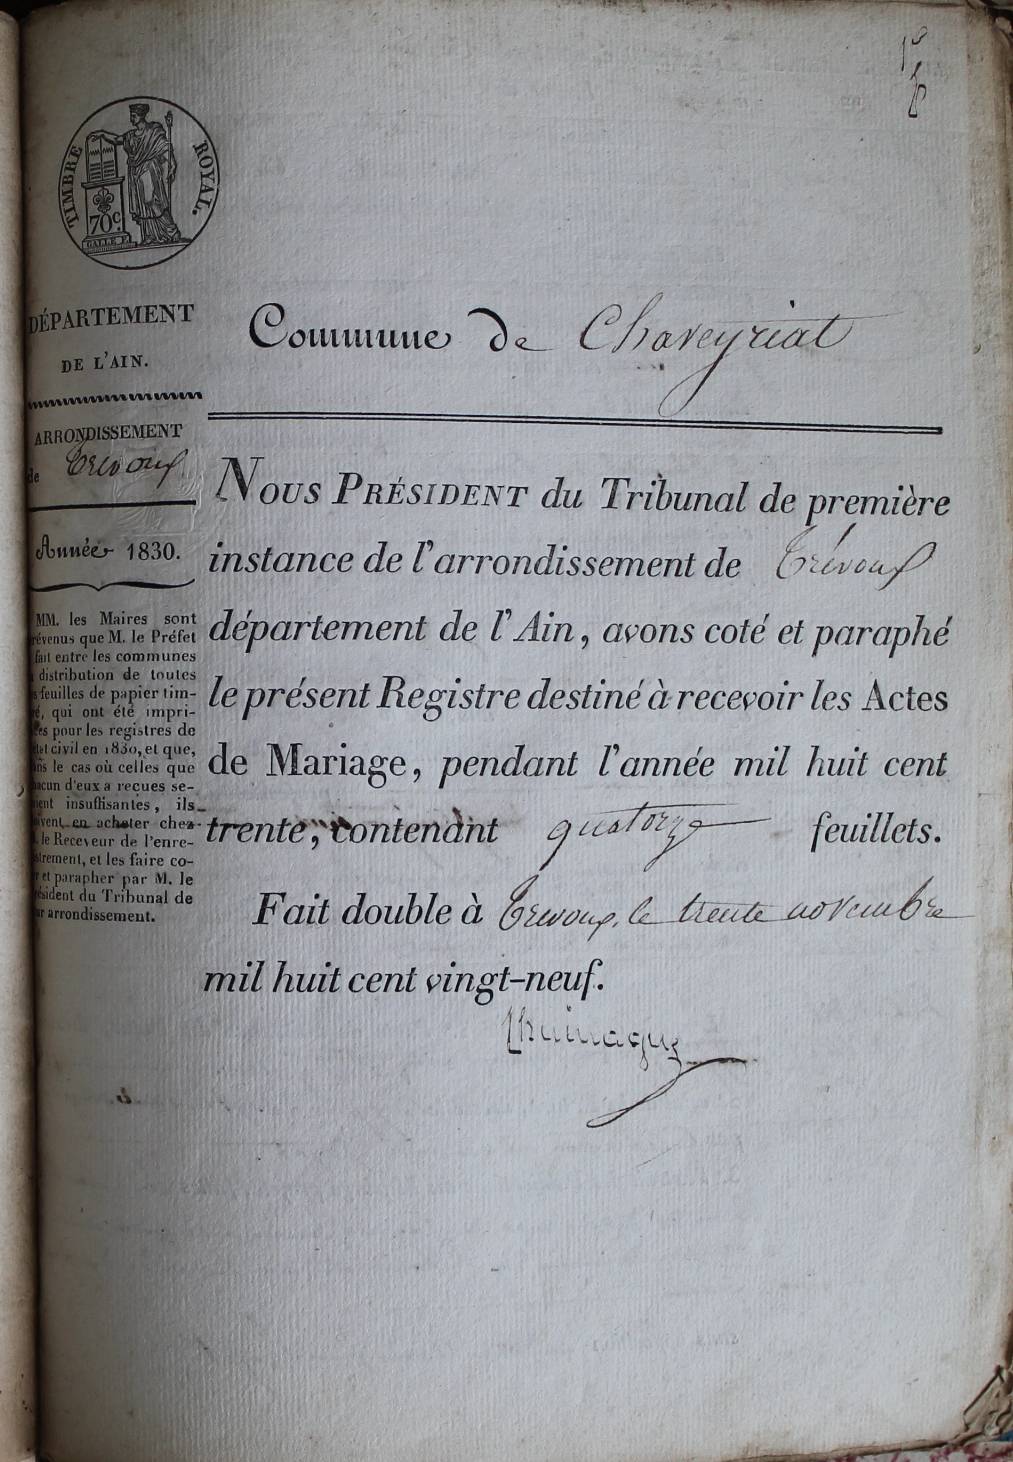 TIMBRE ROYAL.
70c.
GALLE F.
DÉPARTEMENT
DE L'AIN.
ARRONDISSEMENT
de Trevoux
Année 1830.
MM. les Maires sont
prévenus que M. le Préfet
fait entre les communes
la distribution de toutes
les feuilles de papier tim-
bré, qui ont été impri-
mées pour les registres de
l'état civil en 1830, et que,
dans le cas où celles que
chacun d'eux a reçues se-
raient insuffisantes, ils
doivent en acheter chez
M. le Receveur de l'enre-
gistrement, et les faire co-
ter et parapher par M. le
Président du Tribunal de
leur arrondissement.
1er
Commune de Chaveyriat
NOUS PRÉSIDENT du Tribunal de première
instance de l'arrondissement de Trévoux
département de l'Ain, avons coté et paraphé
le présent Registre destiné à recevoir les Actes
de Mariage, pendant l'année mil huit cent
trente, contenant quatorze feuillets.
Fait double à Trevoux, le trente novembre
mil huit cent vingt-neuf.